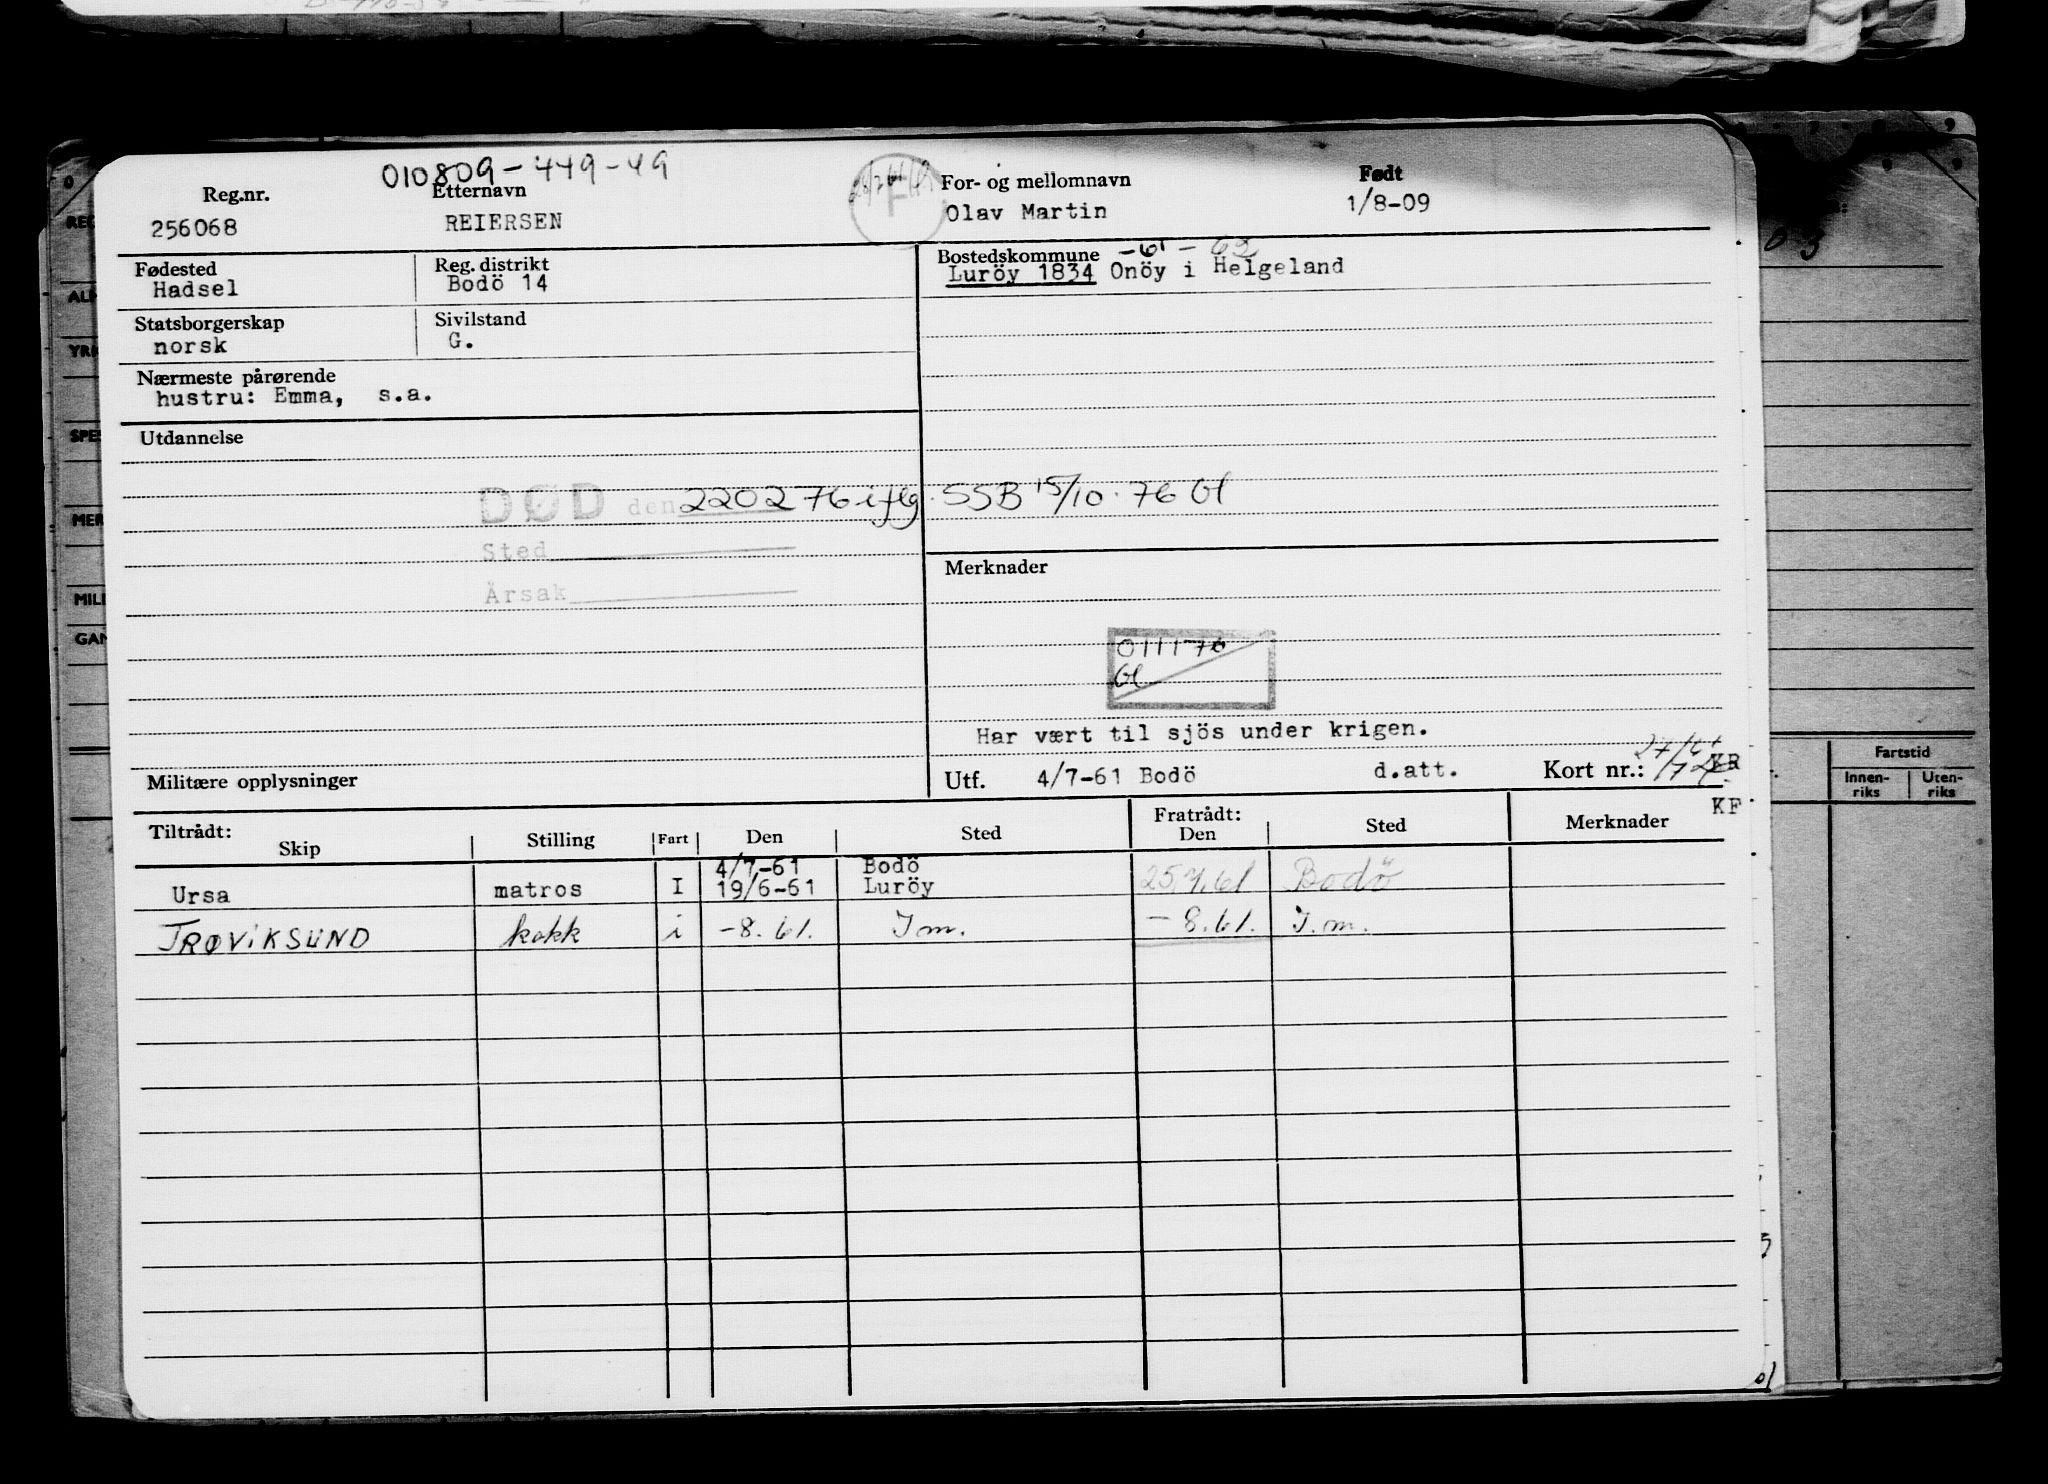 010809-449-49
Reg.nr. Etternavn For- og mellomnavn Født
256068 REIERSEN F Olav Martin 1/8-09
Fødested Reg. distrikt Bostedskommune -61-62
Hadsel Bodö 14 Luröy 1834 Onöy i Helgeland
Statsborgerskap Sivilstand
norsk G.
Nærmeste pårørende
hustru: Emma, s.a.
Utdannelse
DØD den 220276 iflg. SSB 15/10.76 Gl
Sted
Årsak
Merknader
011176
Gl
Har vært til sjös under krigen.
Militære opplysninger Utf. 4/7-61 Bodö d.att. Kort nr.:
KF
Tiltrådt: Fratrådt:
Skip Stilling Fart Den Sted Den Sted Merknader
4/7-61 Bodö
Ursa matros I 19/6-61 Luröy 25.7.61 Bodö
TRØVIKSUND kokk i -8.61. I m. -8.61. I.m.
Fartstid
Innen-riks Uten-riks